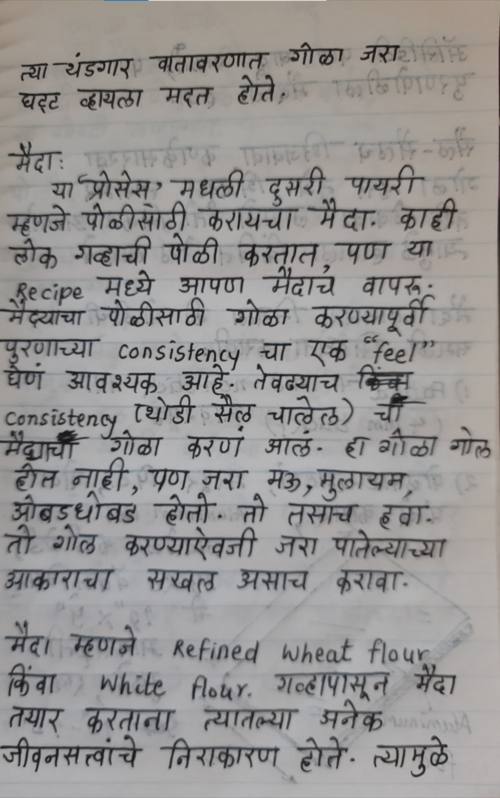 त्या थंडगार वातावरणात गोळा जरा
घट्ट व्हायला मदत होते.
मैदा:
या "प्रोसेस" मधली दुसरी पायरी
म्हणजे पोळीसाठी करायचा मैदा. काही
लोक गव्हाची पोळी करतात, पण या
Recipe मध्ये आपण मैदाच वापरू.
मैद्याचा पोळीसाठी गोळा करण्यापूर्वी
पुरणाच्या consistency चा एक "feel"
घेणं आवश्यक आहे. तेवढ्याच
consistency (थोडी सैल चालेल) ची
मैद्याचा गोळा करणं आलं. हा गोळा गोल
होत नाही, पण जरा मऊ, मुलायम,
ओबडधोबड होतो. तो तसाच हवा.
तो गोल करण्याऐवजी जरा पातेल्याच्या
आकाराचा सखल असाच करावा.
मैदा म्हणजे Refined Wheat flour
किंवा White flour. गव्हापासून मैदा
तयार करताना त्यातल्या अनेक
जीवनसत्वांचे निराकरण होते. त्यामुळे